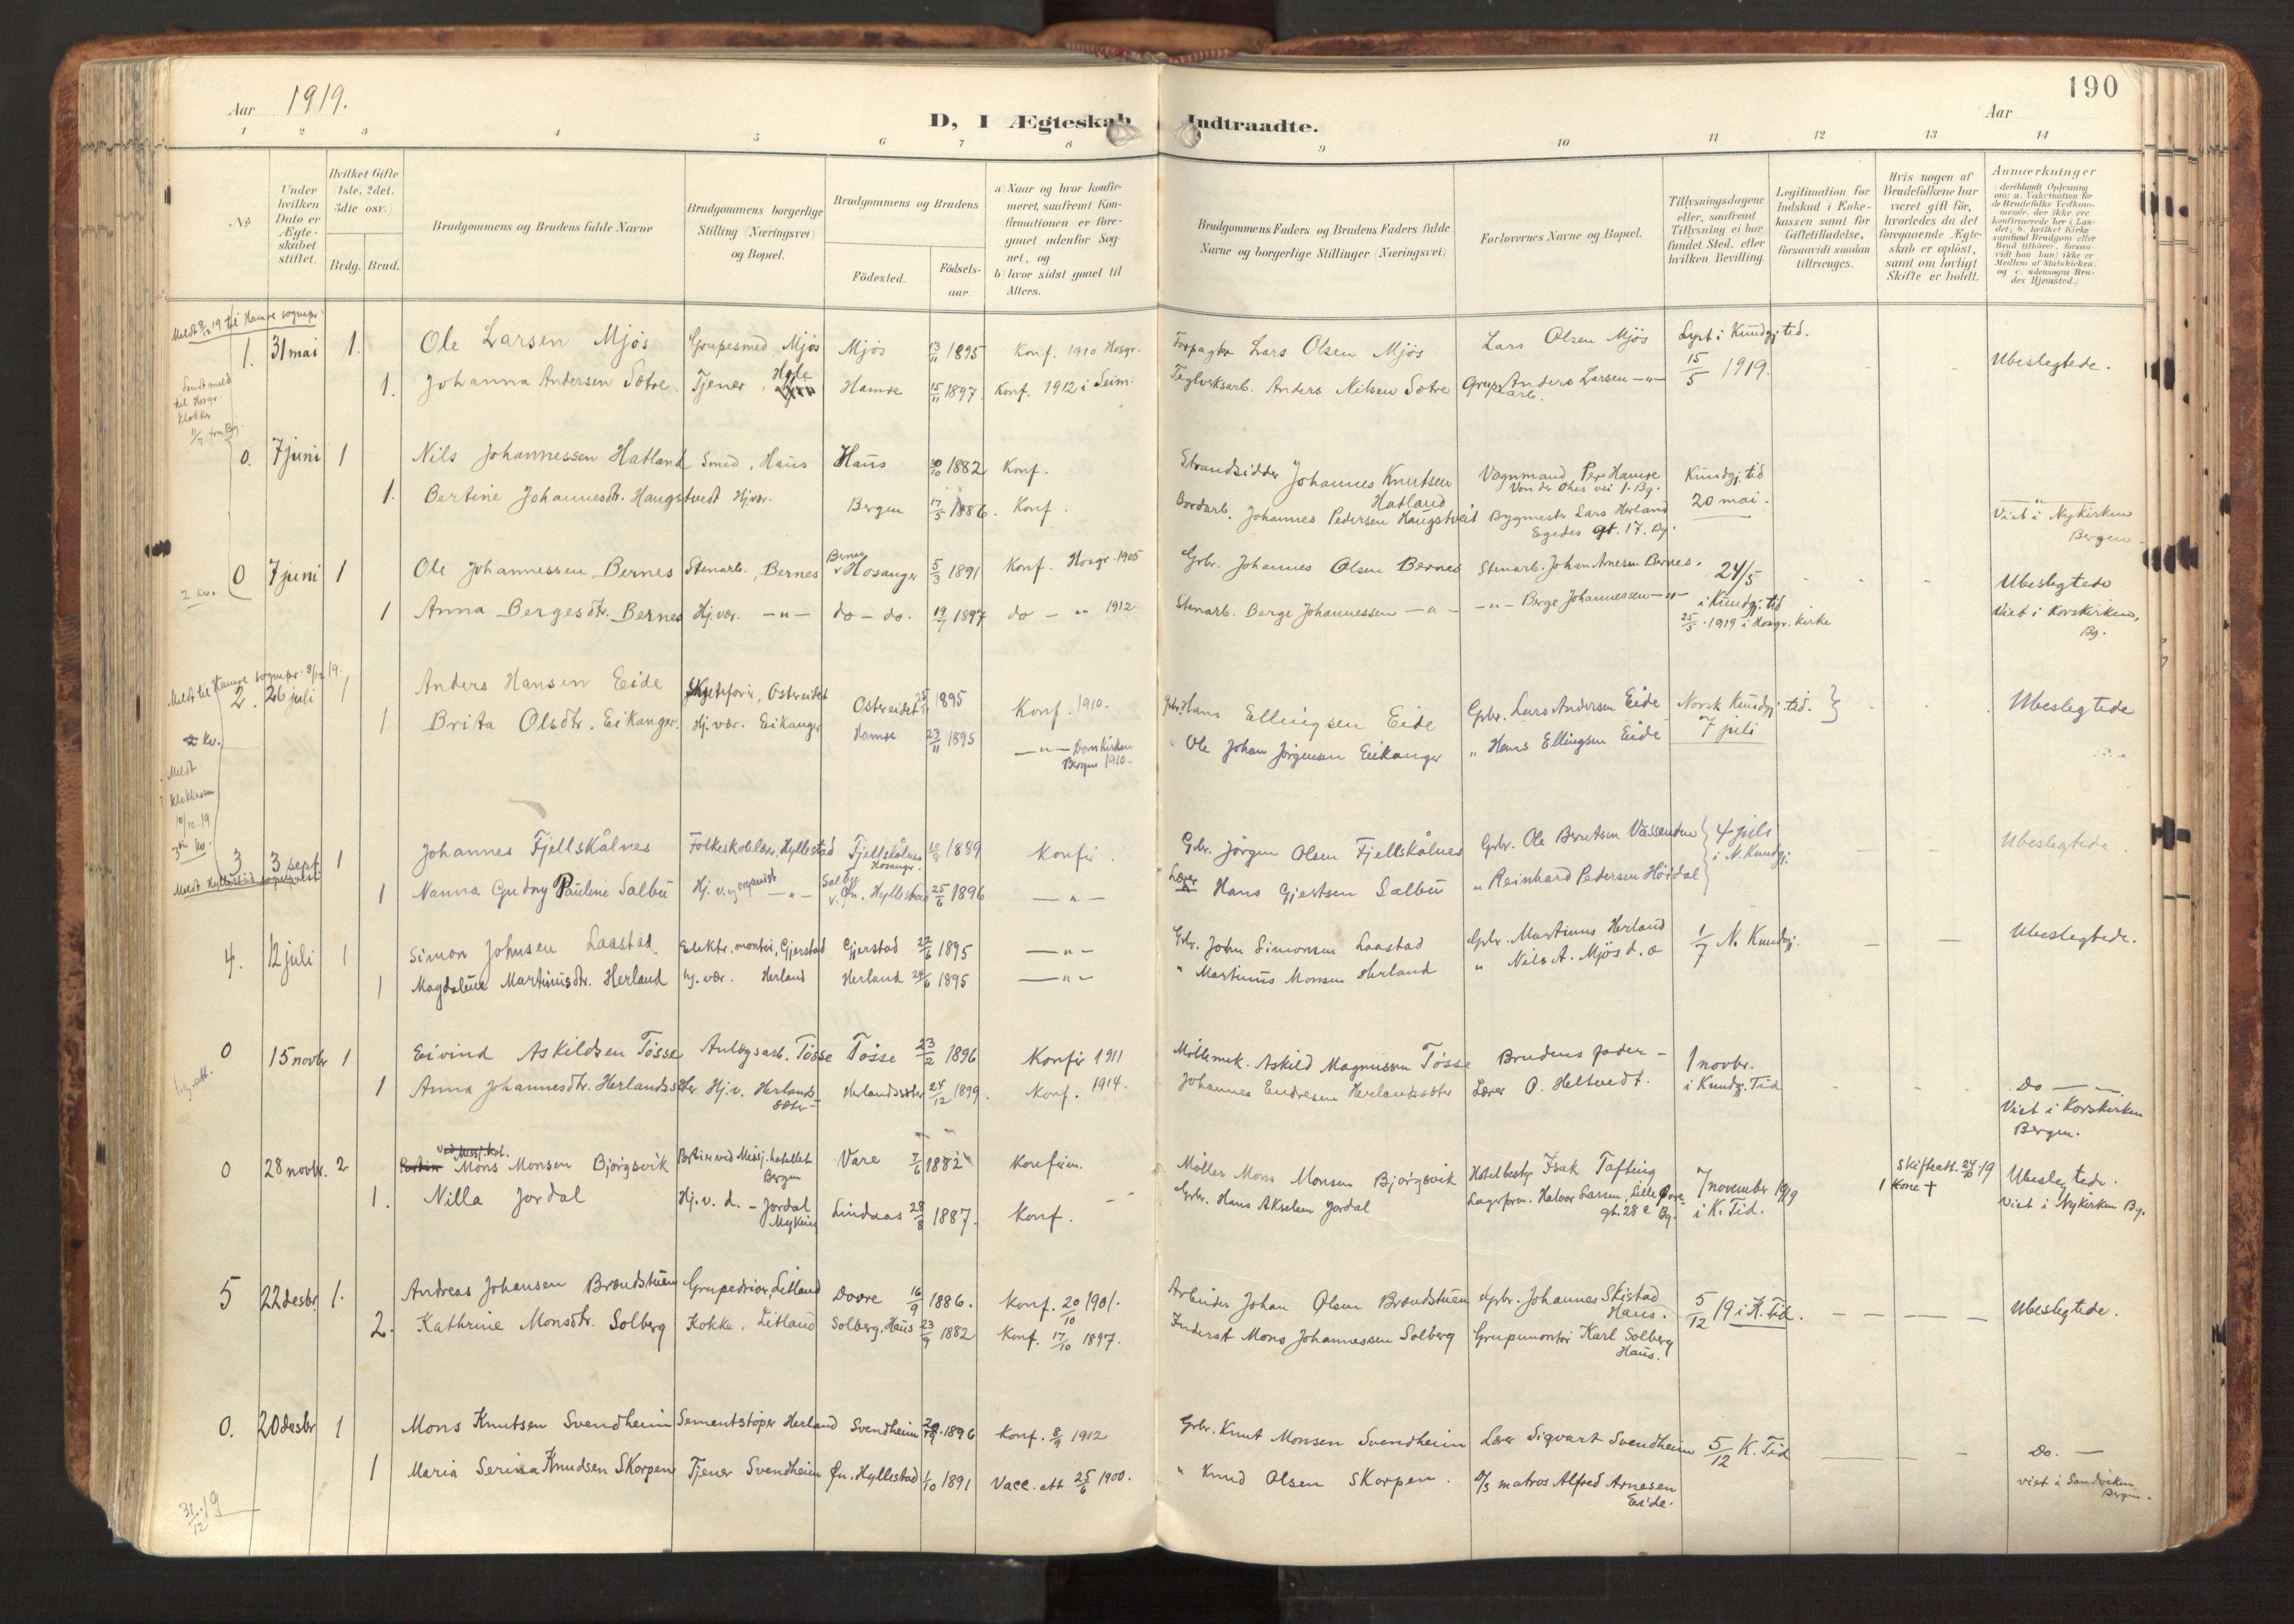 190
Aar 1919.
D, I Ægteskab Indtraadte.
Aar
1 2 3 4 5 6 7 8 9 10 11 12 13 14
No.
Under hvilken Dato er Ægteskabet stiftet.
Hvilket Gifte 1ste, 2det, 3die osv.
Brdg. Brud.
Brudgommens og Brudens fulde Navne
Brudgommens borgerlige Stilling (Næringsvei) og Bopæl.
Brudgommens og Brudens
Fødested.
Fødselsaar.
a) Naar og hvor konfirmeret, saafremt Konfirmationen er foregaaet udenfor Sognet, og
b) hvor sidst gaaet til Alters.
Brudgommens Faders og Brudens Faders fulde Navne og borgerlige Stillinger (Næringsvei)
Forlovernes Navne og Bopæl.
Tillysningsdagene eller, saafremt Tillysning ei har fundet Sted, efter hvilken Bevilling.
Legitimation for Indskud i Enkekassen samt for Giftetilladelse, forsaavidt saadan tiltrænges.
Hvis nogen af Brudefolkene har været gift før, hvorledes da det foregaaende Ægteskab er opløst, samt om lovligt Skifte er holdt.
Anmærkninger
(deriblandt Oplysning om: a. Vakcination for de Brudefolks Vedkommende, der ikke ere konfirmerede her i Landet; b. hvilket Kirkesamfund Brudgom eller Brud tilhører, forsaavidt han (hun) ikke er Medlem af Statskirken, og c. udensogns Brudes Hjemsted.)
Meldt 8/12 19 til Hamre sognepr.
1. 31 mai 1. Ole Larsen Mjøs Grubesmed Mjøs Mjøs 13/11 1895 Konf. 1910 Hosgr. Forpagter Lars Olsen Mjøs Lars Olsen Mjøs Lyst i Kundgj. tid. Ubeslegtede.
1. Johanna Andersen Sötre. Tjener, Hamre 15/11 1897 Konf. 1912 i Seim. Teglverksarb. Anders Nilsen Sötre Grubearb. Anders Larsen —"— 15/5 1919.
0. 7 juni 1 Nils Johannessen Hatland Smed, Haus Haus 1882 Konf. Strandsidder Johannes Knutsen Hatland Vognmand Per Hamre Kundgj. tid
1. Bertine Johannesdtr. Haugstvedt Hj.vær. Bergen 17/5 1886. Konf. Bordarb. Johannes Pedersen Haugstveit Bygmester Lars Herland Egedes gt. 17. Bg. 20 mai. —"— Viet i Nykirken Bergen.
0 7 juni 1 Ole Johannessen Bernes Stenarb., Bernes Bernes v Hosanger 5/3 1891 Konf. Hosgr. 1905 Grbr. Johannes Olsen Bernes Stenarb. Johan Arnesen Bernes. 24/5 Ubeslegtede
2 kv. 1 Anna Bergesdtr. Bernes Hj.vær. —"— do - do. 19/7 1897 do — " 1912 Stenarb. Berge Johannessen —"— —"— Berge Johannessen —"— i Kundgj. tid 25/5 1919 i Hosgr. kirke Viet i Korskirken, Bg.
Meldt til Hamre sognepr. 8/12 19.
2. 26 juli 1 Anders Hansen Eide Ostereidet Ostereidet 1895 Konf. 1910. Grbr. Hans Ellingsen Eide Grbr. Lars Andersen Eide Norsk Kundgj. tid. Ubeslegtede
1 Brita Olsdtr. Eikanger. Hj.vær. Eikanger Hamre 23/11 1895 —"— Domkirken Bergen 1910. " Ole Johan Jörgensen Eikanger " Hans Ellingsen Eide 7 juli
Meldt
10/10-19
3 3 sept 1 Johannes Fjellskålnes Folkeskolelær. Hyllestad Fjellskålnes Hosanger. 1889 Konfir. Grbr. Jörgen Olsen Fjellskålnes Grbr. Ole Berntsen Vassenden 4 juli i N. Kundgj. Ubeslegtede
Meldt Hyllestad sogneprest
1 Nanna Gudny Pauline Salbu Hj. v. og organist —"— Salbu v. Hyllestad 25/6 1896 —"— Lærer Hans Gjertsen Salbu " Reinhard Pedersen Höidal
4. 12 juli 1 Simon Johnsen Laastad Elektr. montör, Gjerstad Gjerstad 22/6 1895 —"— Grbr. John Simonsen Laastad Grbr. Martinus Herland 1/7 N. Kundgj. Ubeslegtede.
1 Magdalene Martinusdtr. Herland hj. vær. Herland Herland 24/6 1895 —"— " Martinus Monsen Herland " Nils A. Mjös d. æ
0 15 novbr 1 Eivind Askildsen Tösse Anlegsarb. Tösse Tösse 23/2 1896 Konfir 1911 Möllemek. Askild Magnussen Tösse Brudens fader — 1 novbr.
1 Anna Johannesdtr. Herlandssæter Hj. v. Herlandssæter Herlandssæter 24/12 1899. Konf. 1914. Johannes Endresen Herlandssæter Lærer O. Heltvedt. i Kundgj. Tid Do —— Viet i Korskirken Bergen.
0 28 novbr. 2 Mons Monsen Bjørgsvik Portier ved Misj. hotellet Bergen Vare 7/6 1882 Konfirm. Möller Mons Monsen Bjørgsvik Hotelbestyr. Isak Tafting 7 november 1919 Skifteatt. 24/10 19 1 Kone † Ubeslegtede.
1. Nilla Jordal Hj. v. d. - Jordal Myking Lindaas 28/8 1887. Konf. Grbr. Hans Akselsen Jordal Lagerform. Halvor Larsen, Lille Øvregt. 28 e Bg. i K. Tid. Viet i Nykirken Bg.
5 22 desbr 1. Andreas Johansen Brændstuen Litland Dovre 16/9 1886. Konf. 20/10 1901. Arbeider Johan Olsen Brændstuen Grbr. Johannes Skistad Haus. 5/12 19 i K. Tid. Ubeslegtede.
2. Kathrine Monsdtr. Solberg Kokke, Litland Solberg, Haus 23/9 1882 Konf. 17/10 1897. Inderst Mons Johannessen Solberg Grubemontör Karl Solberg Haus.
0. 20 desbr 1 Mons Knutsen Svendheim Sementstöper Herland Svendheim 1896 Konf. 8/9 1912 Grbr. Knut Monsen Svendheim Lærer Sigvart Svendheim 5/12 K. Tid Do. —
1 Maria Serina Knudsen Skorpen Tjener Svendheim Øn. Hyllestad 1/10 1891 Vacc. att 25/6 1900. " Knud Olsen Skorpen. D/S matros Alfred Arnesen Eide. viet i Sandviken Bergen.
31/12 19